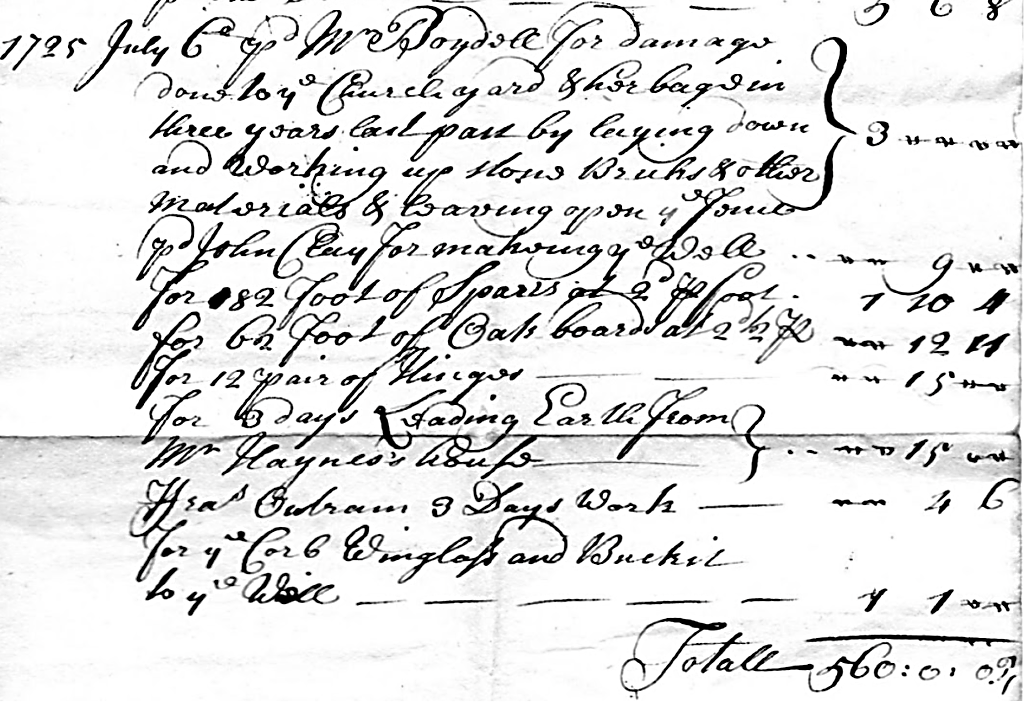 5 6 8
1725 July 6th pd Mr Boydell for damage
done to ye Church yard & herbage in
three years last past by laying down
and Working up stone Bricks & other 3 " "
Materials & leaving open ye Fence
pd John Clay for makeing ye Well .. " 9 "
for 182 foot of Sparrs at 2d p foot . 1 10 4
for 62 foot of Oak boards at 2d½ p " 12 11
for 12 pair of Hinges — " 15 "
for 3 days Leading Earth from
Mr Haynes's house — .. " 15 "
Fras Outram 3 Days Work — " 4 6
for ye Corb Winglass and Buckit
to ye Well — — — — — — 1 1 "
Totall 560:0:0½